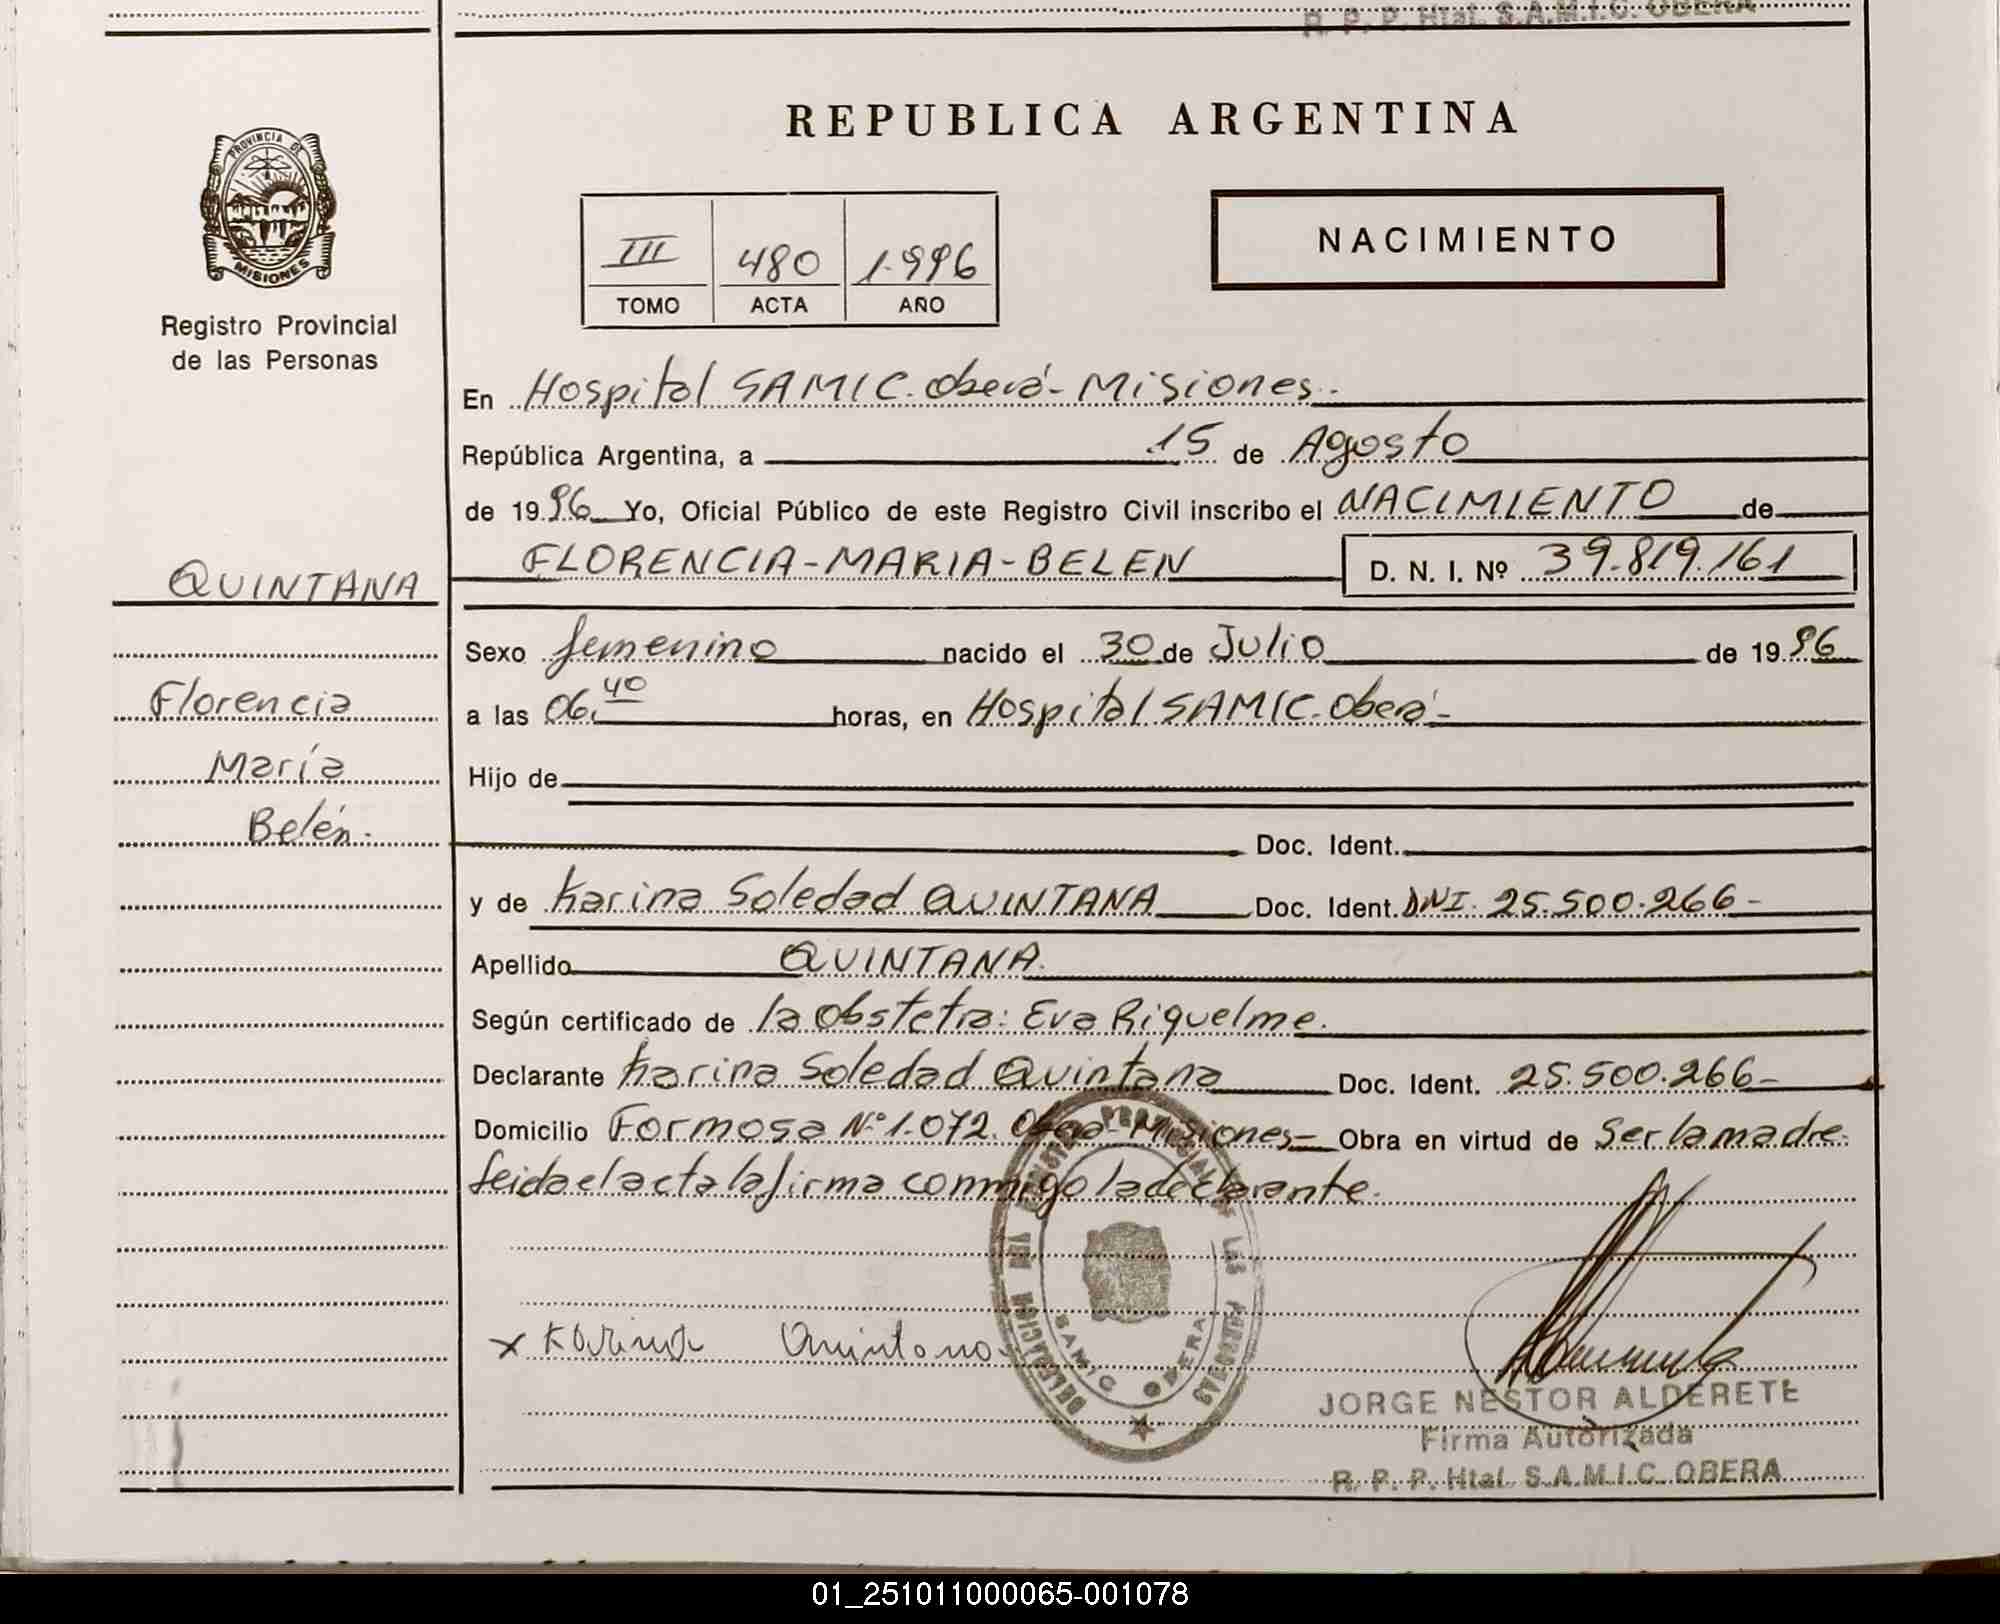 R. P. P. Htal. S.A.M.I.C. OBERA
PROVINCIA DE
MISIONES
Registro Provincial
de las Personas
QUINTANA
Florencia
María
Belén.
REPUBLICA ARGENTINA
III 480 1.996
TOMO ACTA AÑO
NACIMIENTO
En Hospital SAMIC. Oberá - Misiones.
República Argentina, a 15 de Agosto
de 1996 Yo, Oficial Público de este Registro Civil inscribo el NACIMIENTO de
FLORENCIA-MARIA-BELEN D. N. I. Nº 39.819.161
Sexo femenino nacido el 30 de Julio de 1996
a las 06.40 horas, en Hospital SAMIC. Oberá-
Hijo de
Doc. Ident.
y de Karina Soledad QUINTANA Doc. Ident. DNI. 25.500.266-
Apellido QUINTANA.
Según certificado de la Obstetra: Eva Riquelme.
Declarante Karina Soledad Quintana Doc. Ident. 25.500.266-
Domicilio Formosa Nº 1.072. Oberá-Misiones- Obra en virtud de Ser la madre.
Leida el acta la firma conmigo la declarante.
x Karina Quintana
DELEGACION REGISTRO PROVINCIAL DE LAS PERSONAS
SAMIC OBERA
JORGE NESTOR ALDERETE
Firma Autorizada
R. P. P. Htal. S.A.M.I.C. OBERA
01_251011000065-001078